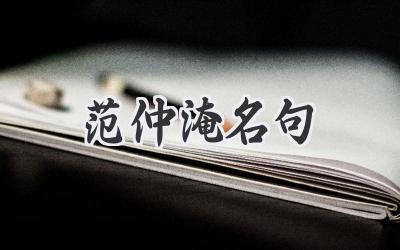 范仲淹名句